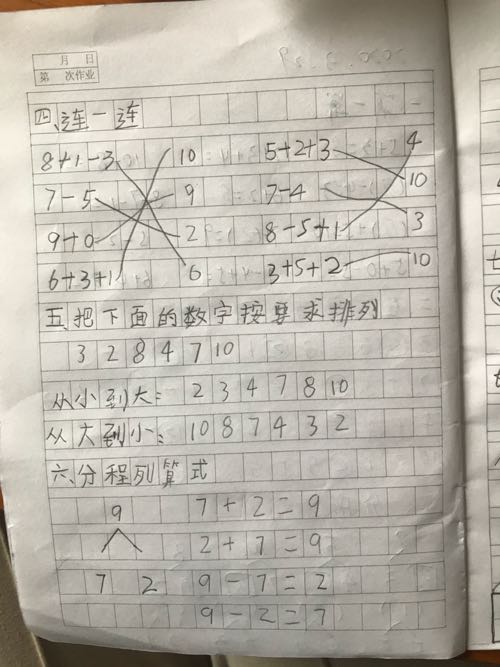 月 日
第 次作业
四、连一连
8+1-3 10 5+2+3 4
7-5 9 7-4 10
9+0 2 8-5+1 3
6+3+1 6 3+5+2 10
五、把下面的数字按要求排列
3 2 8 4 7 10
从小到大: 2 3 4 7 8 10
从大到小: 10 8 7 4 3 2
六、分程列算式
9 7+2=9
2+7=9
7 2 9-7=2
9-2=7